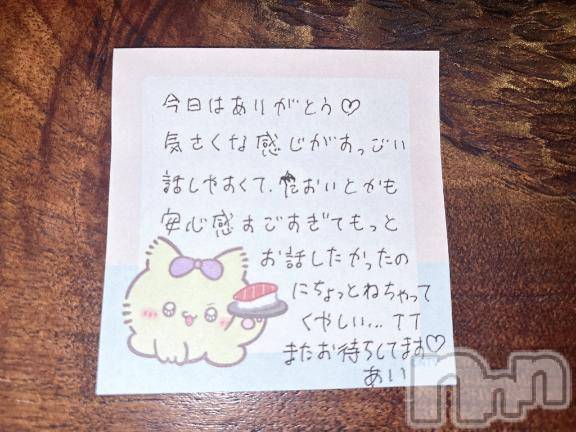 今日はありがとう♡
気さくな感じがすっごい
話しやすくて、においとかも
安心感すごすぎてもっと
お話したかったの
にちょっとねちゃって
くやしい... TT
またお待ちしてます♡
あい
nnn